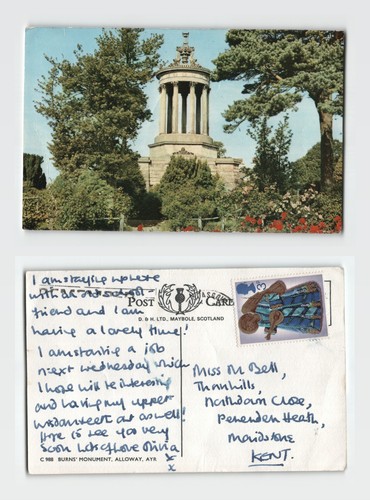 I am staying up here
with
friend and I am
having a lovely time!
I am starting a job
next Wednesday which
I hope will be interesting
and having my upper
wisdom teeth out as well!
Hope to see you very
soon Lots of love Olivia
x
x
POST CARD
D. & H. LTD., MAYBOLE, SCOTLAND
Miss M Bell,
Thornhills,
Northdown Close,
Penenden Heath,
Maidstone
KENT.
C 988 BURNS' MONUMENT, ALLOWAY, AYR